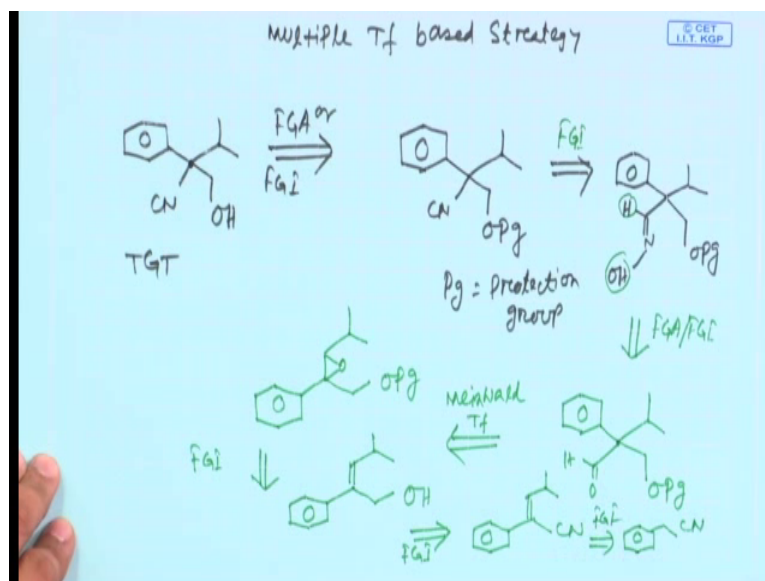 Multiple Tf based Strategy
© CET
I.I.T. KGP
FGA or
FGI
CN
OH
TGT
CN
OPg
Pg = Protection
group
FGI
H
N
OH
OPg
FGA/FGI
H
O
OPg
Meinwald
Tf
O
OPg
FGI
OH
FGI
CN
FGI
CN